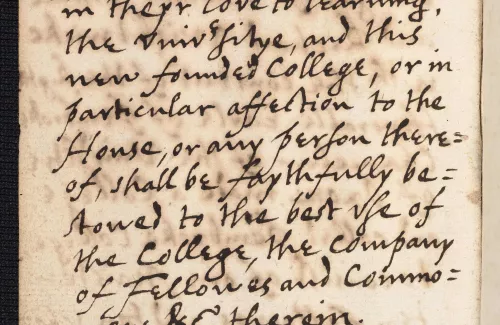 in theyr love to learning,
the Univʳsitye, and this
new founded College, or in
particular affection to the
House, or any person there=
of, shall be faythfully be=
stowed to the best vse of
the College, the Company
of Fellowes and Commo=
&c therein.